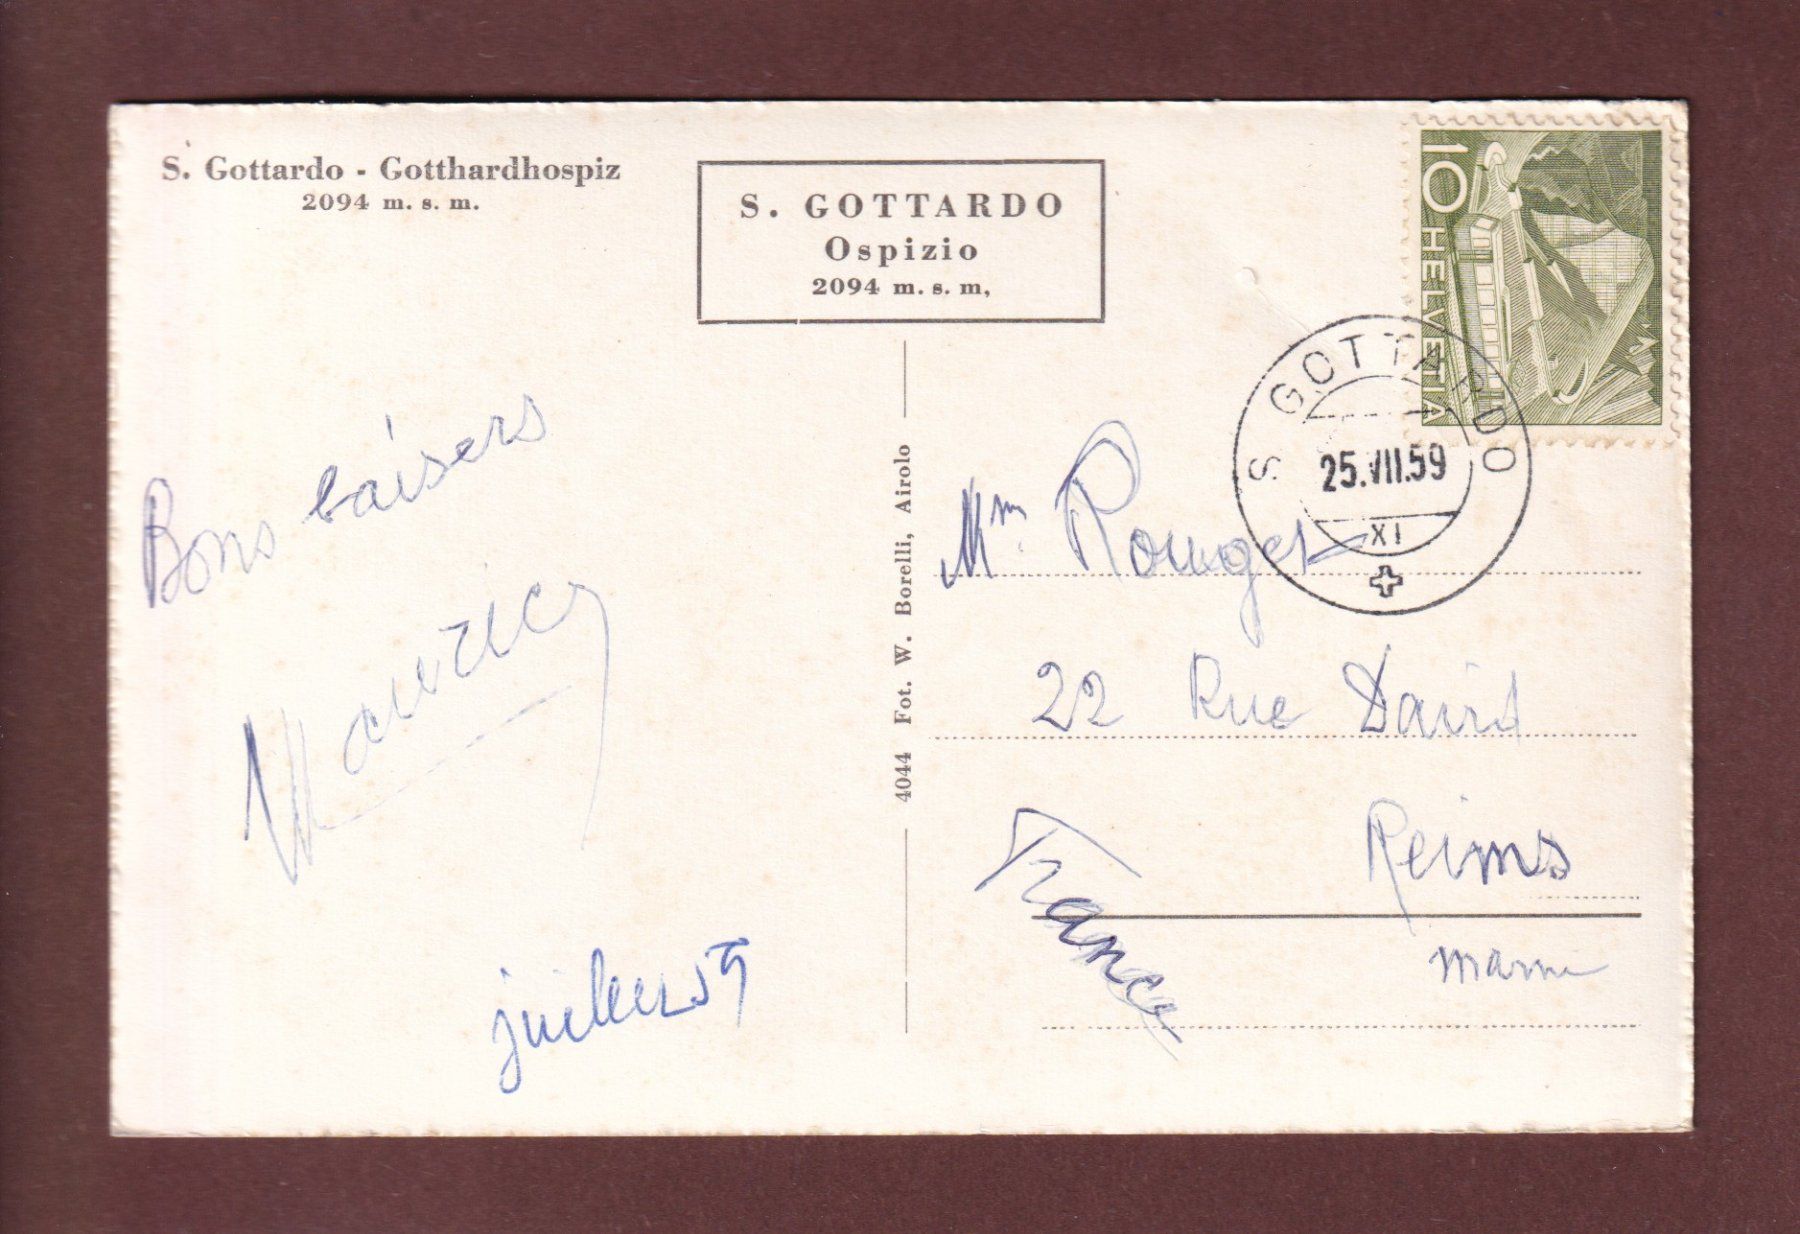 S. Gottardo - Gotthardhospiz
2094 m. s. m.
S. GOTTARDO
Ospizio
2094 m. s. m,
10 HELVETIA
S GOTTARDO
25.VII.59
XI
Bons baisers
Maurice
juillet 59
4044 Fot. W. Borelli, Airolo
Mm
22 Rue David
Reims
France